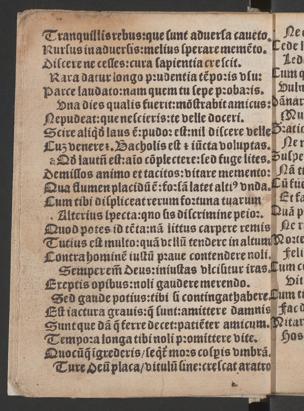 Tranquillis rebus: que sunt aduersa caueto.
Rursus in aduersis: melius sperare memēto.
Discere ne cesses: cura sapientia crescit.
Rara datur longo prudentia tēporis vsu:
Parce laudato: nam quem tu sepe probaris.
Vna dies qualis fuerit: mōstrabit amicus:
Nepudeat: que nescieris: te velle doceri.
Scire aliqd laus ē: pudor est: nil discere velle
Cuz venere ⁊ Bacholis est ⁊ iūcta voluptas.
Qd lautū est: aīo cōplectere: sed fuge lites.
Demissos animo et tacitos: vitare memento:
Qua flumen placidū ē: forsā latet altiꝰ vnda.
Cum tibi displiceat rerum fortuna tuarum
Alterius specta: quo sis discrimine peior:
Quod potes id tēta: nā littus carpere remis
Tutius est multo: quā vellū tendere in altum
Contra hominē iustū praue contendere noli.
Semper em Deus: iniustas vlciscitur iras.
Ereptis opibus: noli gaudere merendo.
Sed gaude potius: tibi si contingat habere.
Est iactura grauis: q̄ sunt: amittere damnis
Sunt que dā q̄ ferre decet: patiēter amicum.
Tempora longa tibi noli promittere vite.
Quocūq̄ igrederis: seqr̄ mors corpis vmbrā.
Ture deū placa: vitulū sine: crescat aratro